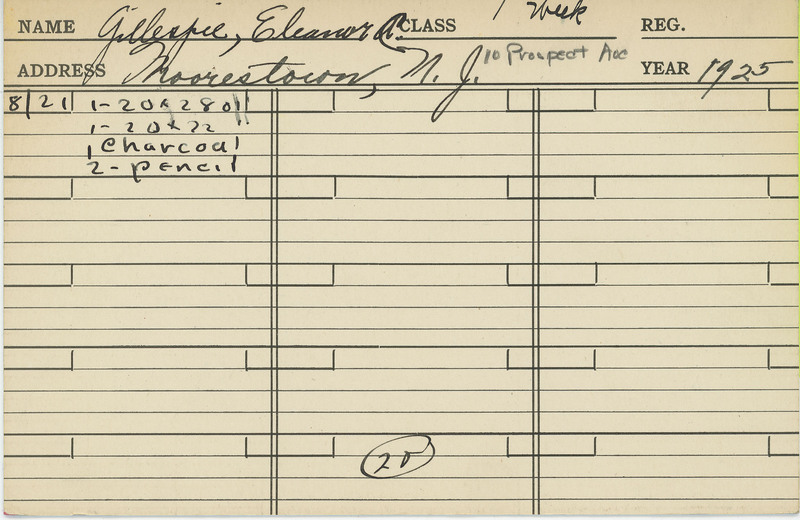 NAME Gillespie, Eleanor R. CLASS 1 Week REG.
ADDRESS Moorestown, N. J. 10 Prospect Ave YEAR 1925
8/21 1-20x280
1-20x22
1 charcoal
2-pencil
20